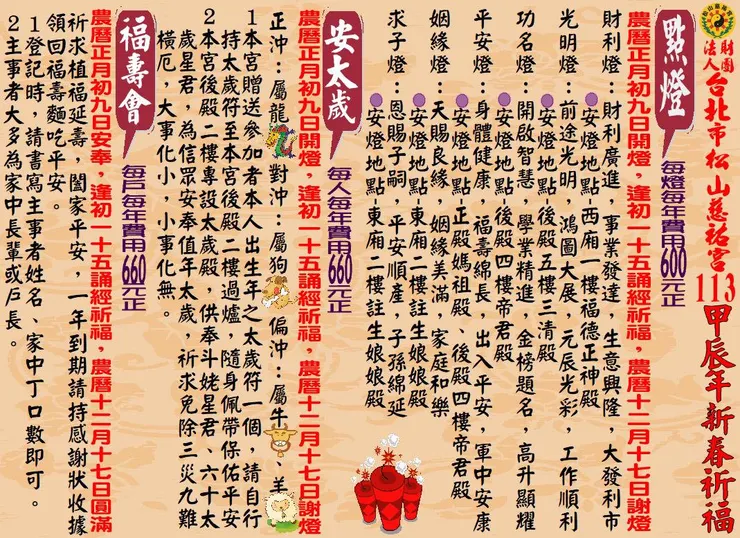 財團法人台北市松山慈祐宮113甲辰年新春祈福
點燈
每燈每年費用600元正
農曆正月初九日開燈，逢初一十五誦經祈福，農曆十二月十七日謝燈
財利燈：財利廣進，事業發達，生意興隆，大發利市
安燈地點-西廂一樓福德正神殿
光明燈：前途光明，鴻圖大展，元辰光彩，工作順利
安燈地點-後殿五樓三清殿
功名燈：開啟智慧，學業精進，金榜題名，高升顯耀
安燈地點-後殿四樓帝君殿
平安燈：身體健康，福壽綿長，出入平安，軍中安康
安燈地點-正殿媽祖殿、後殿四樓帝君殿
姻緣燈：天賜良緣，姻緣美滿，家庭和樂
安燈地點-東廂二樓註生娘娘殿
求子燈：恩賜子嗣，平安順產，子孫綿延
安燈地點-東廂二樓註生娘娘殿
安太歲
每人每年費用660元正
農曆正月初九日開燈，逢初一十五誦經祈福，農曆十二月十七日謝燈
正沖：屬龍 對沖：屬狗 偏沖：屬牛、羊
1本宮贈送參加者本人出生年之太歲符一個，請自行
持太歲符至本宮後殿二樓過爐，隨身佩帶保佑平安
2本宮後殿二樓專設太歲殿，供奉斗姥星君、六十太
歲星君，為信眾安奉值年太歲，祈求免除三災九難
橫厄，大事化小，小事化無。
福壽會
每戶每年費用660元正
農曆正月初九日安奉，逢初一十五誦經祈福，農曆十二月十七日圓滿
祈求植福延壽，闔家平安，一年到期請持感謝狀收據
領回福壽麵吃平安。
1登記時，請書寫主事者姓名、家中丁口數即可。
2主事者大多為家中長輩或戶長。